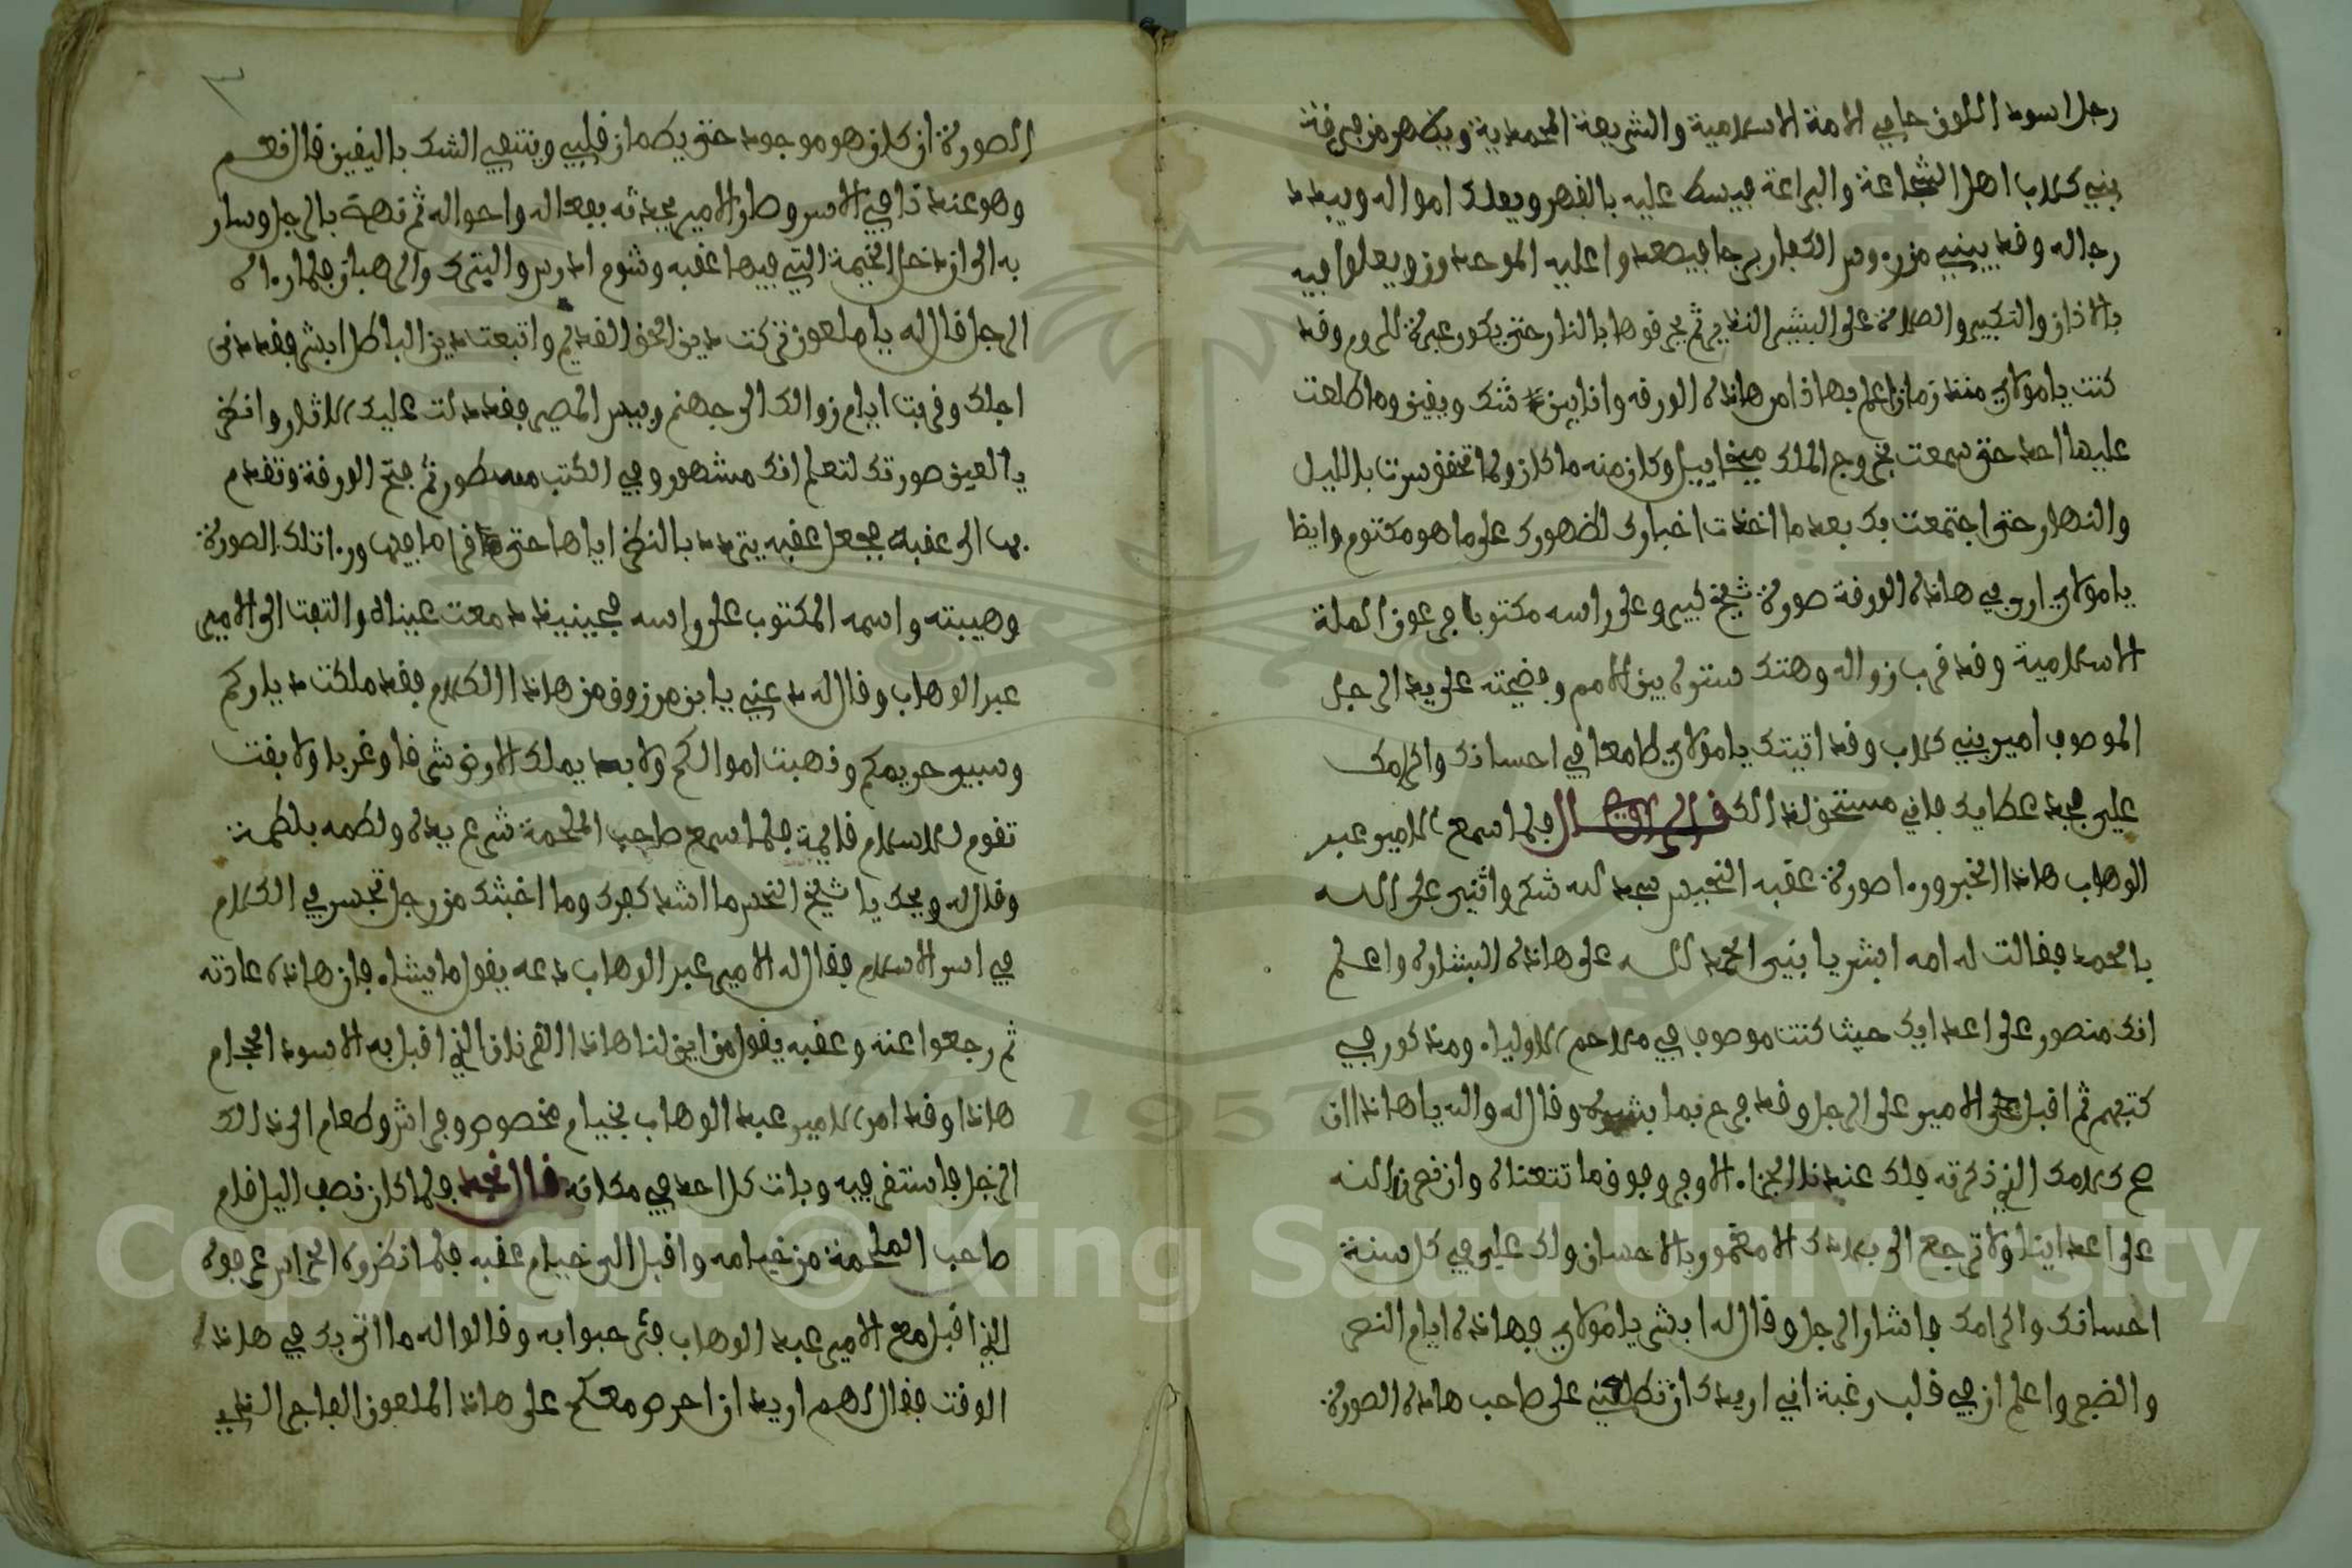 رجل اسود اللون حامي الامة الاسلامية والشريعة المحمدية ويظهر من فرقة
بني كلاب اهل الشجاعة والبراعة فيسط عليه بالقهر ويملك امواله ويبدد
رجاله وقد يبني من روس الكفار برجا فيصعدوا عليه الموحدون ويعلوا فيه
بالاذان والتكبير والصلاة على البشير النذير ثم يحرقوها بالنار حتى يكون عبرة للروم وقد
كنت يامولاي منذ زمان اعلم بهاذا من هاذه الورقه وانا بين شك ويقين وما طلعت
عليها احد حتى سمعت بخروج الملك ميخاييل وكان منه ما كان ولما تحقق سرت بالليل
والنهار حتى اجتمعت بك بعد ما اخذت اخبارك لظهورك على ما هو مكتوم وايظا
يامولاي ارى في هاذه الورقة صورة شيخ كبير وعلى راسه مكتوبا فرعون الملة
الاسلامية وقد قرب زواله وهتك ستره بين الامم وفضيحته على يد الرجل
الموصوف امير بني كلاب وقد اتيتك يا مولاي طامعا في احسانك واكرامك
علي بجد عطايك فاني مستحق لذالك قال الراوي فلما سمع الامير عبد
الوهاب هاذا الخبر وراا صورة عقبه النحيس سجد لله شكر واثنى على الله
يامحمد فقالت له امه ابشر يا بني الحمد لله على هاذه البشاره واعلم
انك منصور على اعدايك حيث كنت موصوف في ملاحم الاوليا. ومذكور في
كتبهم ثم اقبل الامير على الرجل وقد فرح بما بشره وقال له والله ياهاذا ان
صح كلامك الذي ذكرته فلك عندنا الجزا. الاوفر وفوق ما تتمناه وان نصرنا الله
على اعداينا ولا ترجع الى بلادك الا مغمور بالاحسان ولك علي في كل سنة
احسانك واكرامك فاشار الرجل وقال له ابشر يامولاي فهاذه ايام النصر
والضفر واعلم ان في قلب رغبة اني اريدك ان تطلعني على صاحب هاذه الصورة
٣
الصورة ان كان هو موجود حتى يطمان قلبي وينتفي الشك باليقين قال نعم
وهو عندنا في الاسر وصار الامير يحدثه بفعاله واحواله ثم نهض بالرجل وسار
به الى ان دخل الخيمة التي فيها عقبه وشوم ادرس واليترك والرهبان فلما راا
الرجل قال له يا ملعون تركت دين الحق القديم واتبعت دين الباطل ابشر فقد دنى
اجلك وقربت ايام زوالك الى جهنم وبيس المصير فقد دلت عليك الاثار وانظر
يا لعين صورتك لتعلم انك مشهور وفي الكتب مسطور ثم فتح الورقة وتقدم
بها الى عقبه فجعل عقبه يتردد بالنظر اياها حتى قرا ما فيها وراا تلك الصورة
وهيبته واسمه المكتوب على راسه فحينيذ دمعت عيناه والتفت الى الامير
عبد الوهاب وقال له دعني يا بن مرزوق من هاذا الكلام فقد ملكت دياركم
وسبي حريمكم وذهبت اموالكم ولا بد يملك الارض شرقا وغربا ولا بقت
تقوم للاسلام قايمة فلما سمع صاحب الملحمة شرع يده ولطمه بلطمة
وقال له ويحك يا شيخ النحس ما اشد كفرك وما اخبثك من رجل تجسر في الكلام
في اسر الاسلام فقال له الامير عبد الوهاب دعه يقول ما يشا. فان هاذه عادته
ثم رجعوا عنه وعقبه يقول من اين لنا هاذا القرنان الذي اقبل به الاسود الحجام
هاذا وقد امر الامير عبد الوهاب بخيام مخصوص وفراش وطعام الى ذالك
الرجل فاستقر فيه وبات كل احد في مكانه قال نجد فلما كان نصف اليل قام
صاحب الملحمة من خيامه واقبل الى خيام عقبه فلما نظروه الحراس عرفوه
الذي اقبل مع الامير عبد الوهاب فترحبوا به وقالوا له ما اتى بك في هاذا
الوقت فقال لهم اريد ان احرص معكم على هاذ الملعون الفاجر الذي